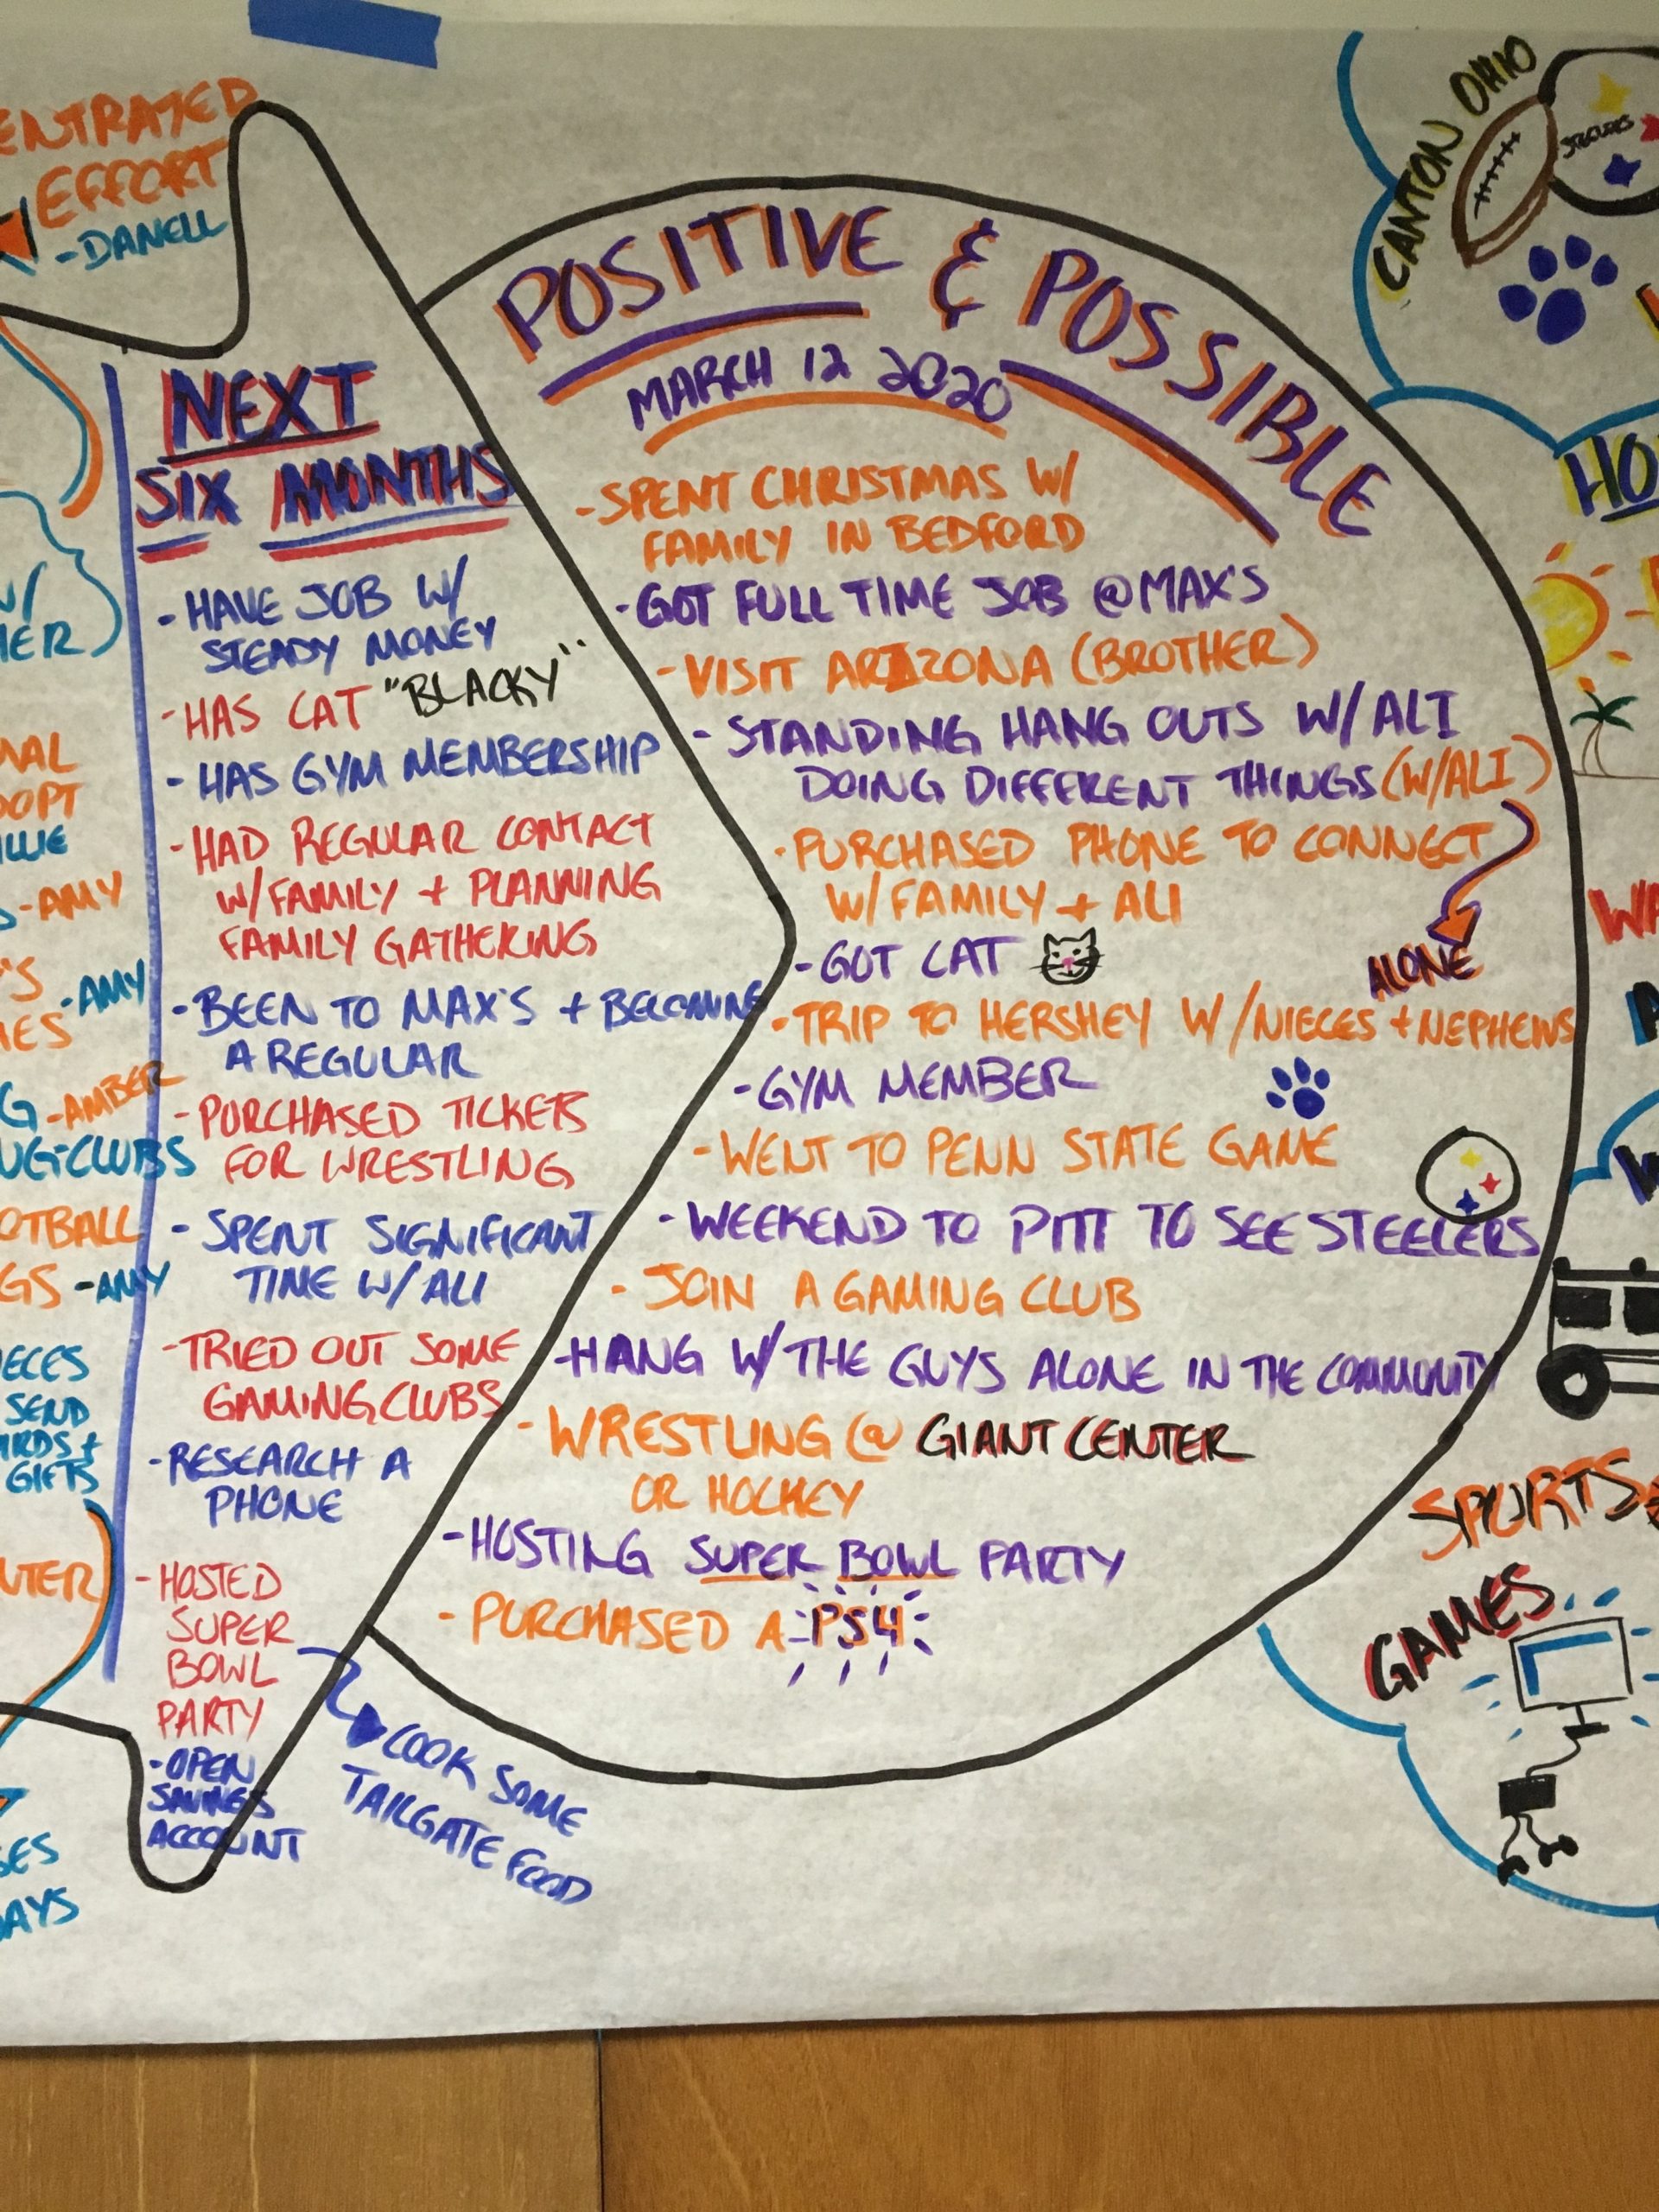 EFFORT
-DANELL
NEXT
SIX MONTHS
- HAVE JOB W/
STEADY MONEY
- HAS CAT "BLACKY"
- HAS GYM MEMBERSHIP
- HAD REGULAR CONTACT
W/FAMILY + PLANNING
FAMILY GATHERING
- BEEN TO MAX'S + BECOMING
A REGULAR
- PURCHASED TICKETS
FOR WRESTLING
- SPENT SIGNIFICANT
TIME W/ ALI
- TRIED OUT SOME
GAMING CLUBS
- RESEARCH A
PHONE
- HOSTED
SUPER
BOWL
PARTY
- OPEN
SAVINGS
ACCOUNT
COOK SOME
TAILGATE FOOD
POSITIVE & POSSIBLE
MARCH 12 2020
- SPENT CHRISTMAS W/
FAMILY IN BEDFORD
- GOT FULL TIME JOB @MAX'S
- VISIT ARIZONA (BROTHER)
- STANDING HANG OUTS W/ ALI
DOING DIFFERENT THINGS (W/ALI)
ALONE
- PURCHASED PHONE TO CONNECT
W/ FAMILY + ALI
- GOT CAT
- TRIP TO HERSHEY W/NIECES + NEPHEWS
- GYM MEMBER
- WENT TO PENN STATE GAME
- WEEKEND TO PITT TO SEE STEELERS
- JOIN A GAMING CLUB
- HANG W/ THE GUYS ALONE IN THE COMMUNITY
- WRESTLING @ GIANT CENTER
OR HOCKEY
- HOSTING SUPER BOWL PARTY
- PURCHASED A PS4
-AMY
-AMY
-AMBER
-CLUBS
-AMY
SEND
GIFTS
CANTON OHIO
STEELERS
SPORTS
GAMES